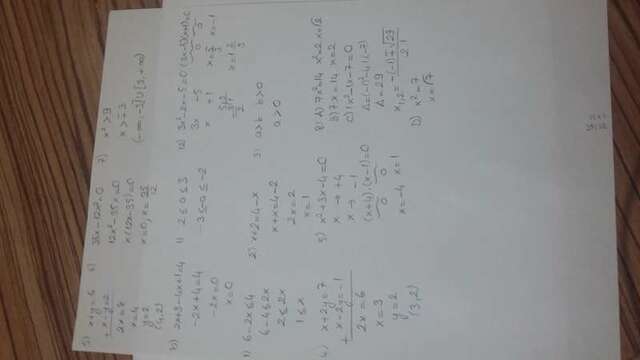 5) x+y=6
+ x-y=2
2x=8
x=4
y=2
(4,2)
6) 35x-12x²=0
12x²-35x=0
x(12x-35)=0
x=0, x=35/12
7) x²>9
x>∓3
(-∞,-3]∪[3,+∞)
2x+3-4x+1=4
-2x+4=4
-2x=0
x=0
11) 2≤a≤3
-3≤-a≤-2
12) 3x²-2x-5=0 (3x-5)(x+1)=0
3x -5
x +1
x=5/3 x=-1
1) 6-2x≤4
6-4≤2x
2≤2x
1≤x
2) x+2=4-x
x+x=4-2
2x=2
x=1
3) a>b b>0
a>0
4) x+2y=7
+ x-2y=-1
2x=6
x=3
y=2
(3,2)
5) x²+3x-4=0
x → +4
x → -1
(x+4).(x-1)=0
0 0
x=-4 x=1
8) A) 7x²=14 x²=2 x=√2
B) 7x=14 x=2
C) x²-x-7=0
Δ=(-1)²-4.1.(-7)
Δ=29
x1,2=-(-1)∓√29
2.1
D) x²=7
x=√7